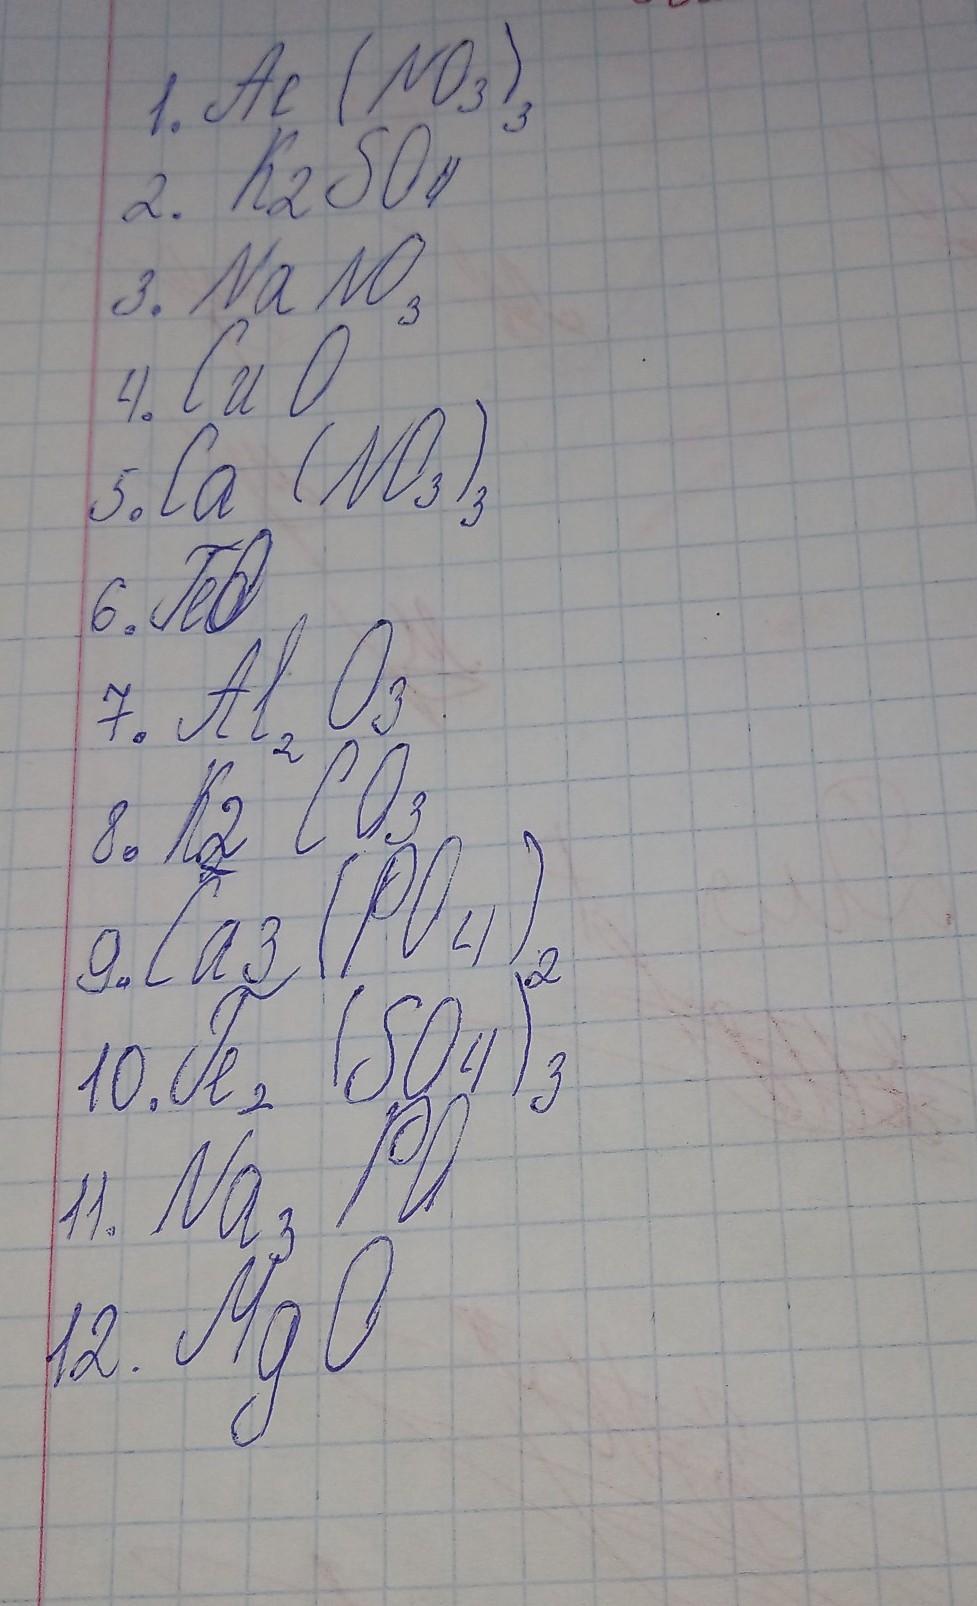 1. Al (NO3)3
2. K2SO4
3. Na NO3
4. Cu O
5. Ca (NO3)3
6. FeO
7. Al2 O3
8. K2 CO3
9. Ca3 (PO4)2
10. Fe2 (SO4)3
11. Na3 PO
12. Mg O